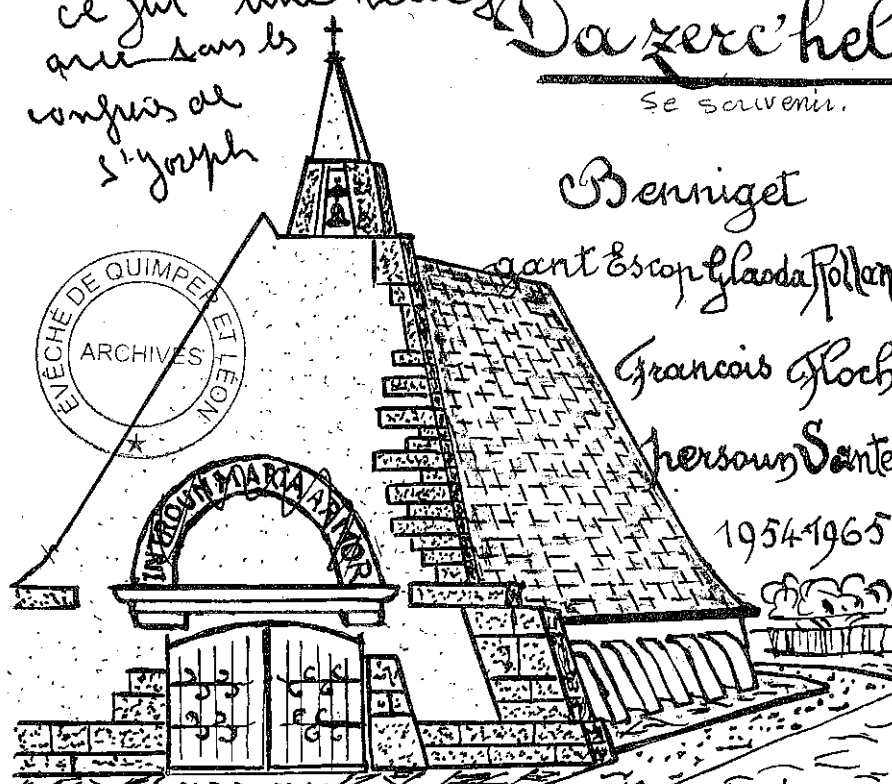 ce fut une
que dans les
de
St Joseph
Da zerc'hel
se souvenir.
Benniget
gant Escop Glaoda Rollan
Francois Floch
persoun Sante
1954-1965
ÉVÊCHÉ DE QUIMPER ET LÉON
ARCHIVES
INTROUN MARIA ARMOR